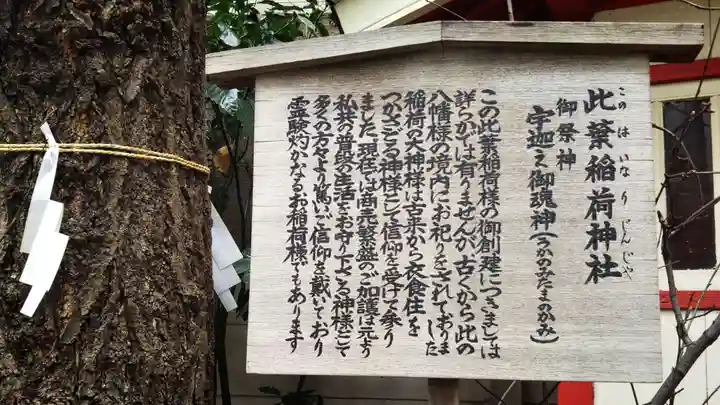 このはいなりじんじゃ
此葉稲荷神社
御祭神
宇迦之御魂神(うかのみたまのかみ)
この此葉稲荷様の御創建につきましては
詳らかでは有りませんが古くから此の
八幡様の境内にお祀りをされておりました
稲荷の大神様は古来から衣食住を
つかさどる神様として信仰を受けて参り
ました、現在では商売繁盛のご加護は元より
私共の普段の生活をお守り下さる神様として
多くの方々より篤いご信仰を戴いており
霊験灼かなるお稲荷様でもあります